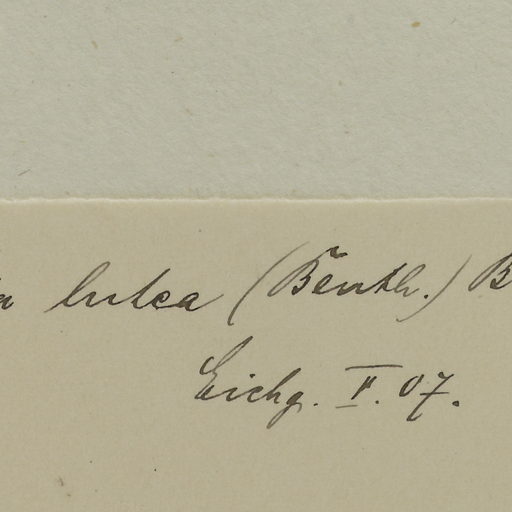 a lutea (Benth.) B
Eichg. II. 07.